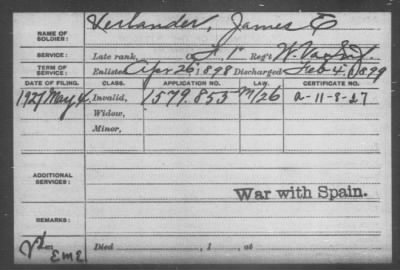 NAME OF SOLDIER: Verlander, James E
SERVICE: Late rank, Reg't W. Va
TERM OF SERVICE: Enlisted Apr 26, 1898 Discharged Feb 4, 1899
DATE OF FILING. CLASS. APPLICATION NO. LAW. CERTIFICATE NO.
1927 May 4 Invalid, 1579.853 M/26 a-11-8-27
Widow,
Minor,
ADDITIONAL SERVICES:
War with Spain.
REMARKS:
EME Died , 1 , at